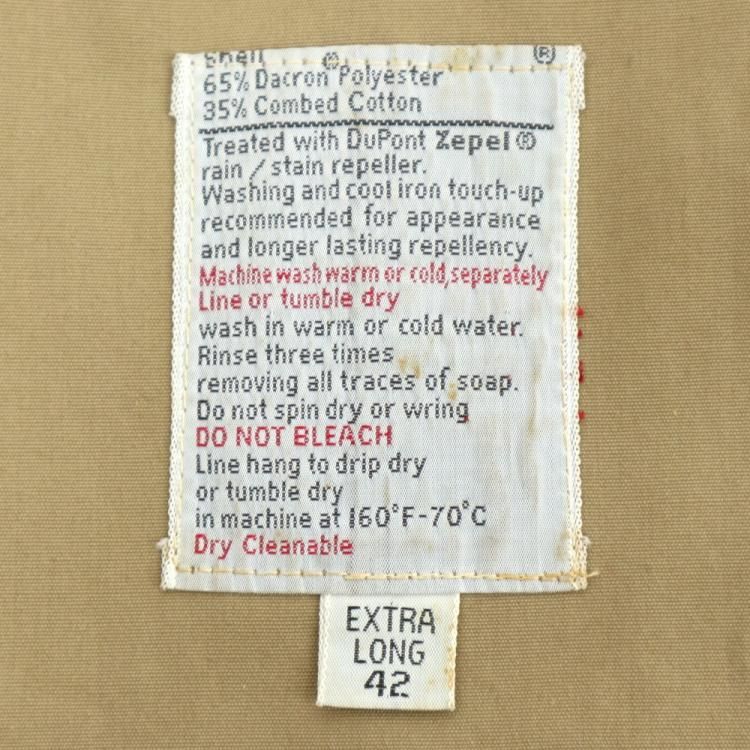 Shell
65% Dacron® Polyester ®
35% Combed Cotton
Treated with DuPont Zepel®
rain / stain repeller.
Washing and cool iron touch-up
recommended for appearance
and longer lasting repellency.
Machine wash warm or cold, separately
Line or tumble dry
wash in warm or cold water.
Rinse three times
removing all traces of soap.
Do not spin dry or wring
DO NOT BLEACH
Line hang to drip dry
or tumble dry
in machine at 160°F-70°C
Dry Cleanable
EXTRA
LONG
42